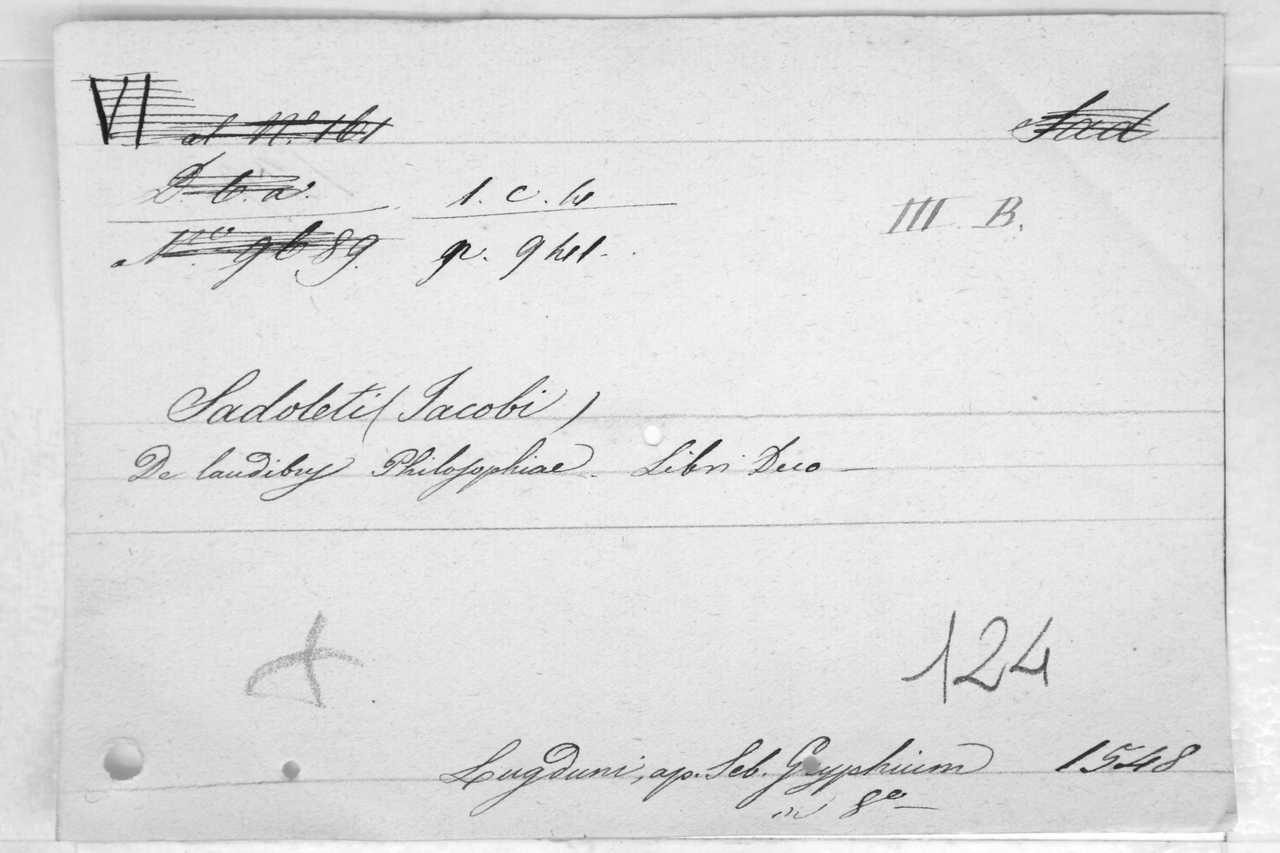 VI al N.º 161 Sad
D. b. a. 1. c. 4 III B.
N.ro 9689. p. 941.
Sadoleti (Jacobi)
De laudibus Philosophiae. Libri Duo
124
Lugduni, ap. Seb. Gryphium 1548
in 8º